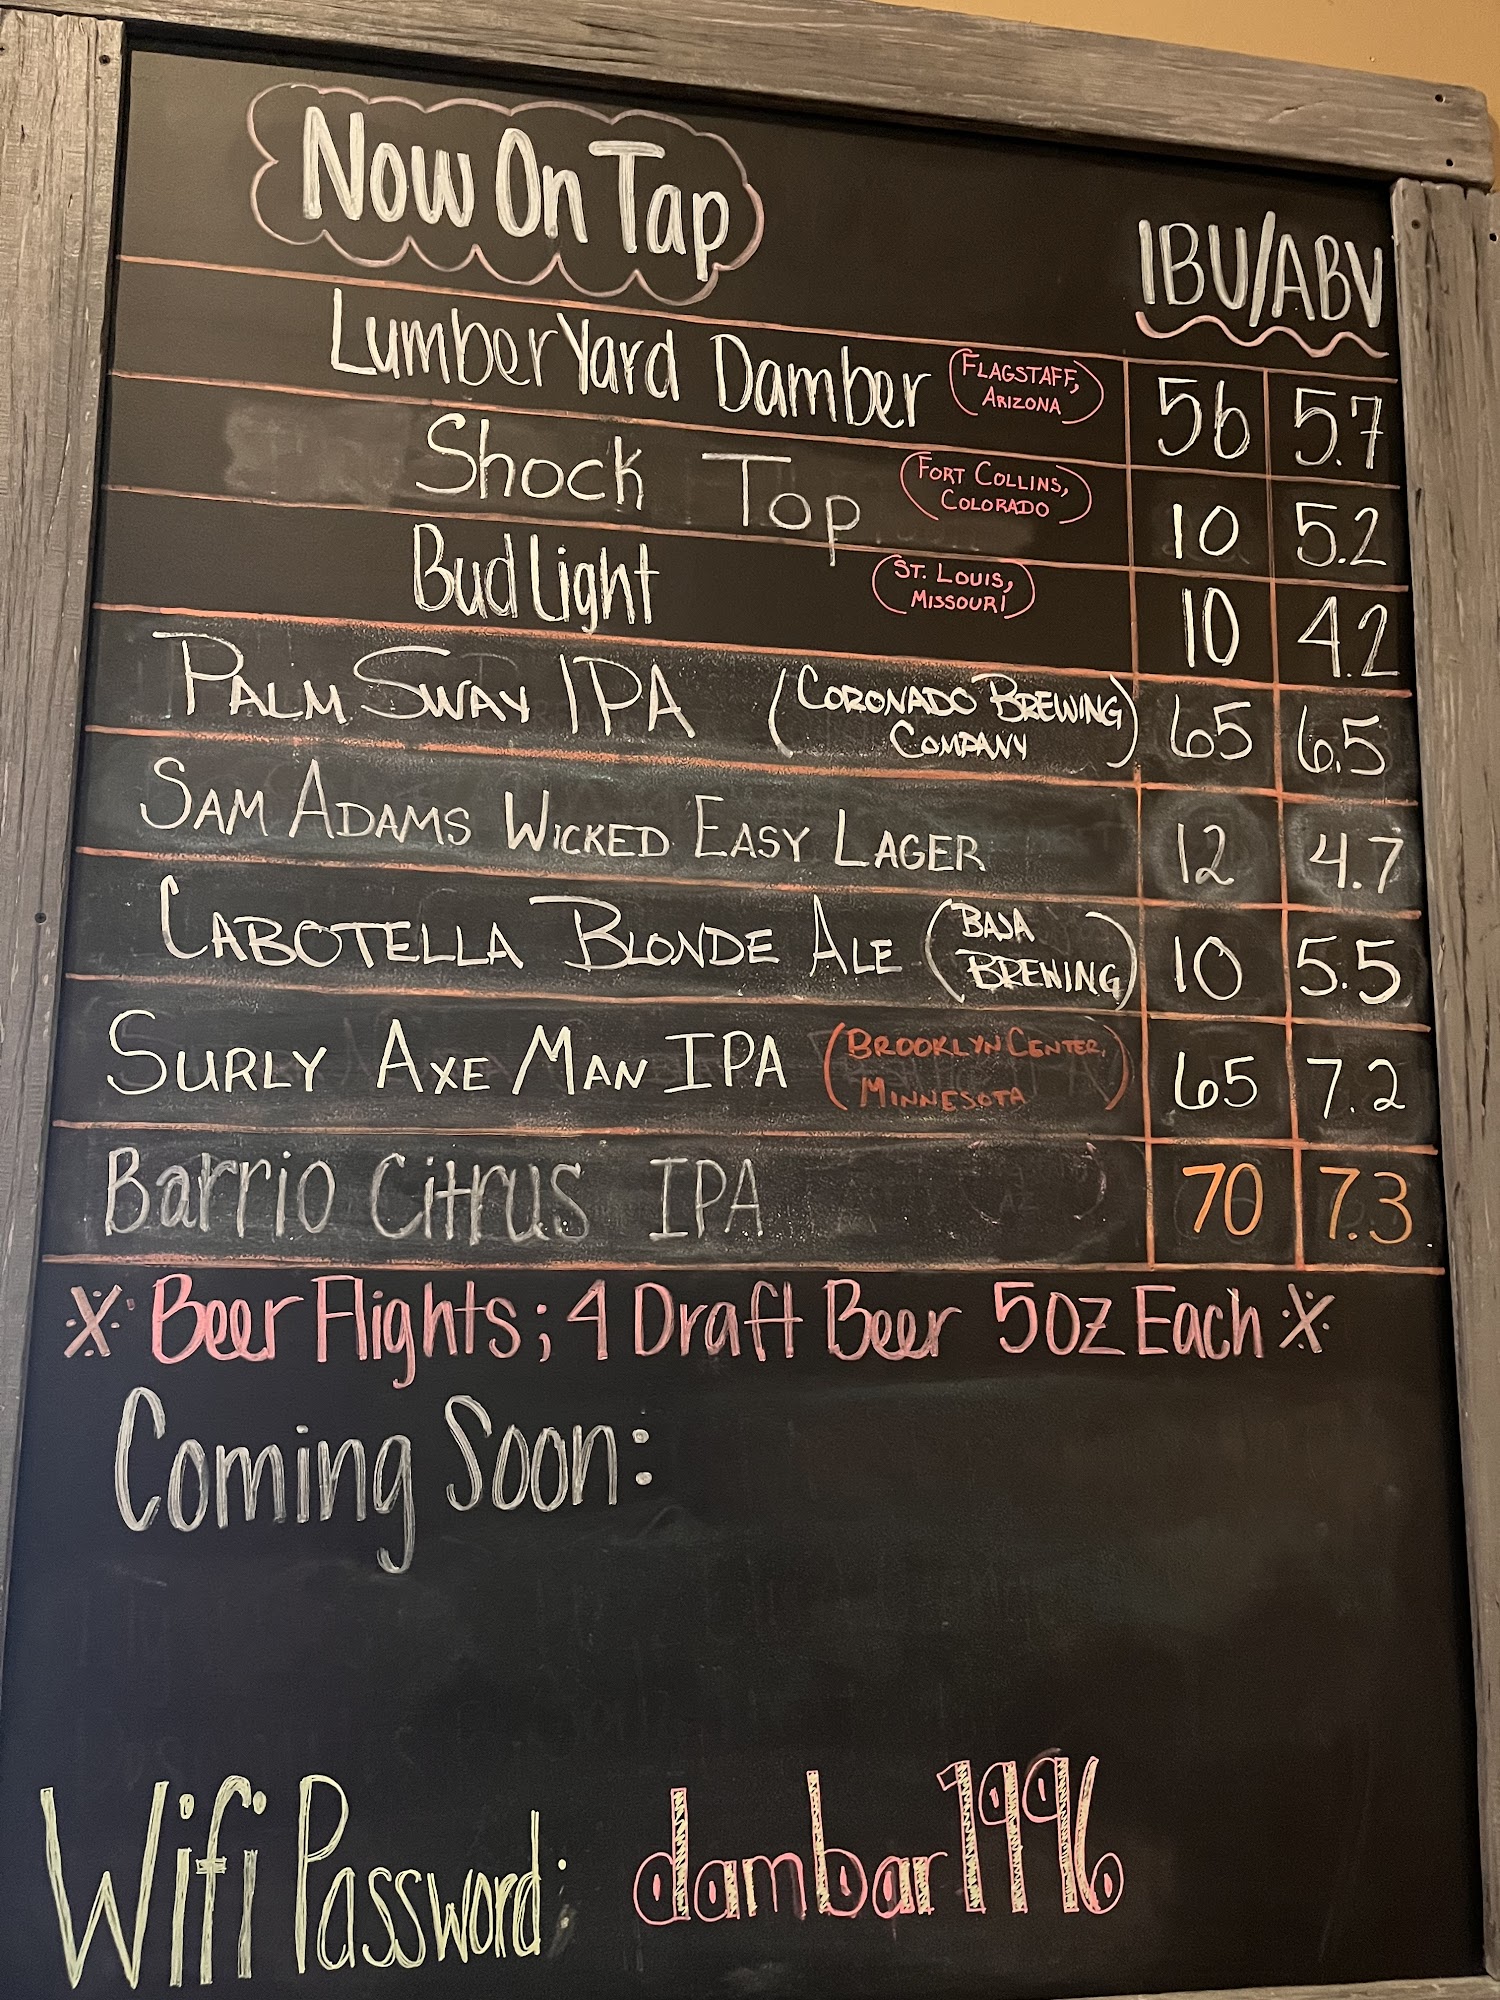 Now On Tap
IBU/ABV
LumberYard Damber (FLAGSTAFF, ARIZONA) 56 5.7
Shock Top (FORT COLLINS, COLORADO) 10 5.2
Bud Light (ST. LOUIS, MISSOURI) 10 4.2
PALM SWAY IPA (CORONADO BREWING COMPANY) 65 6.5
SAM ADAMS WICKED EASY LAGER 12 4.7
CABOTELLA BLONDE ALE (BAJA BREWING) 10 5.5
SURLY AXE MAN IPA (BROOKLYN CENTER, MINNESOTA) 65 7.2
Barrio Citrus IPA 70 7.3
※ Beer Flights; 4 Draft Beer 5oz Each ※
Coming Soon:
Wifi Password: dambar1996